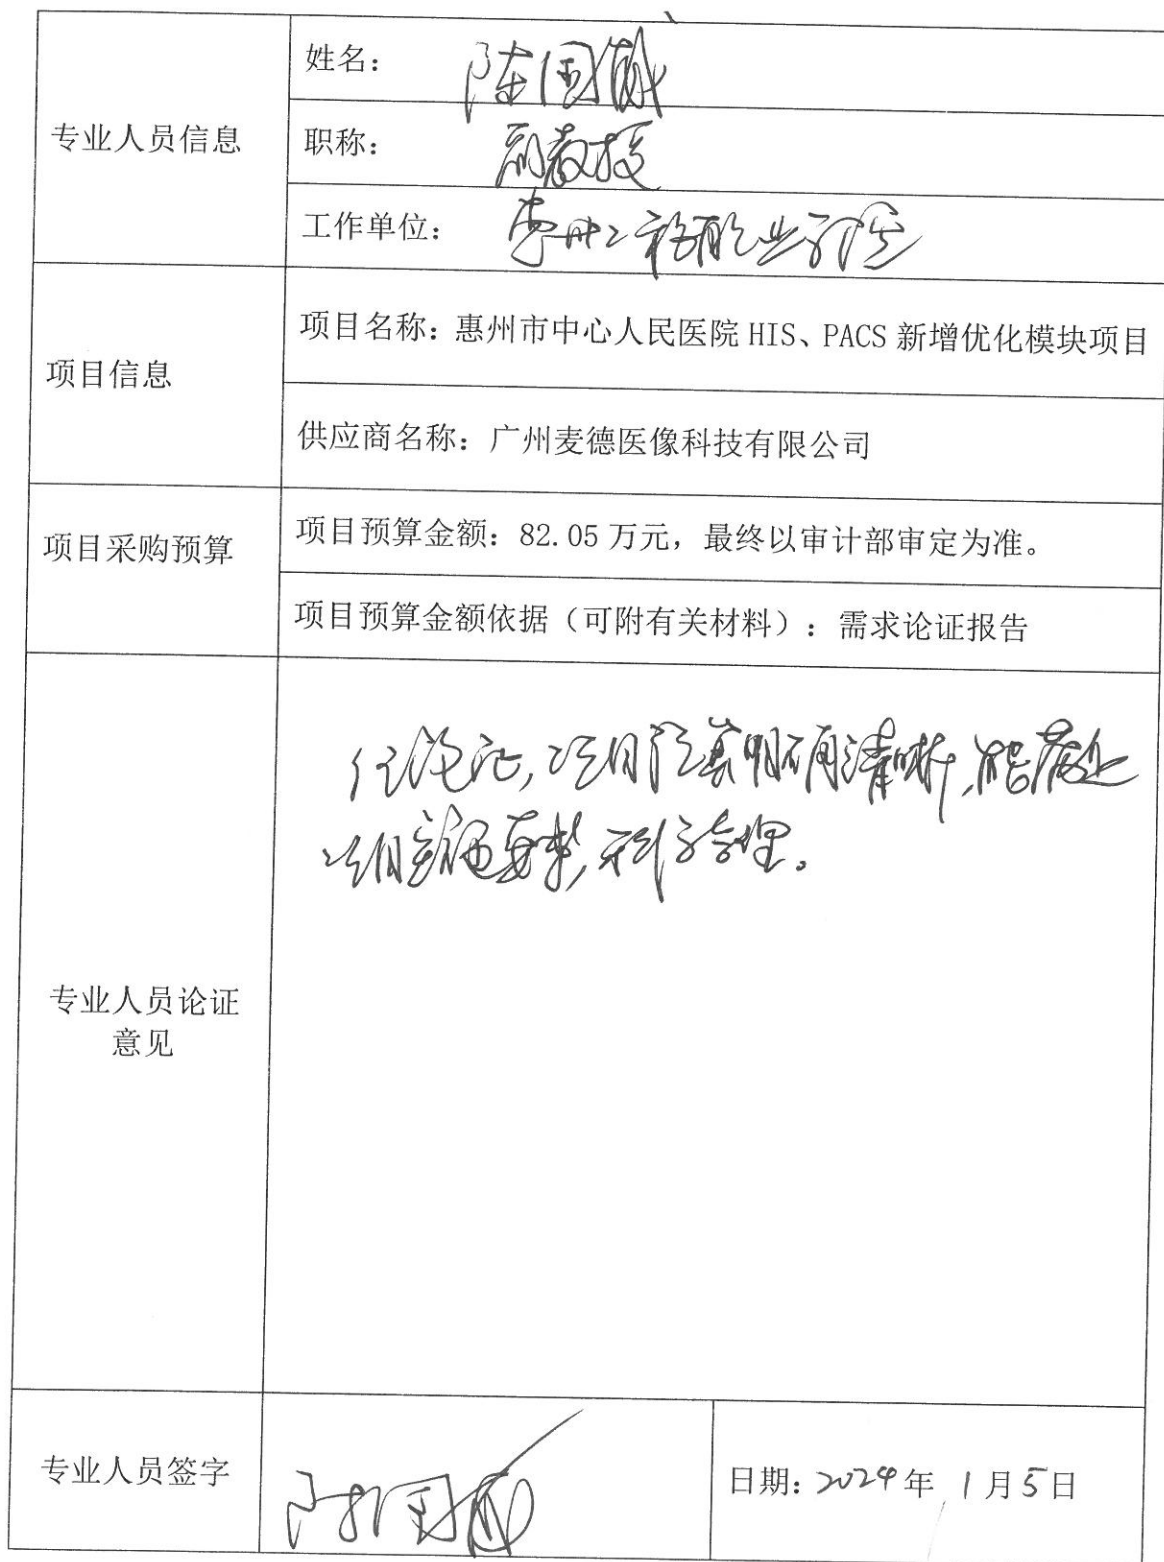 专业人员信息
姓名：陈国威
职称：副教授
工作单位：惠州工程职业学院
项目信息
项目名称：惠州市中心人民医院 HIS、PACS 新增优化模块项目
供应商名称：广州麦德医像科技有限公司
项目采购预算
项目预算金额：82.05 万元，最终以审计部审定为准。
项目预算金额依据（可附有关材料）：需求论证报告
专业人员论证
意见
经论证，项目预算明确清晰，能满足
项目实施要求，科学合理。
专业人员签字
陈国威
日期：2024年 1月5日